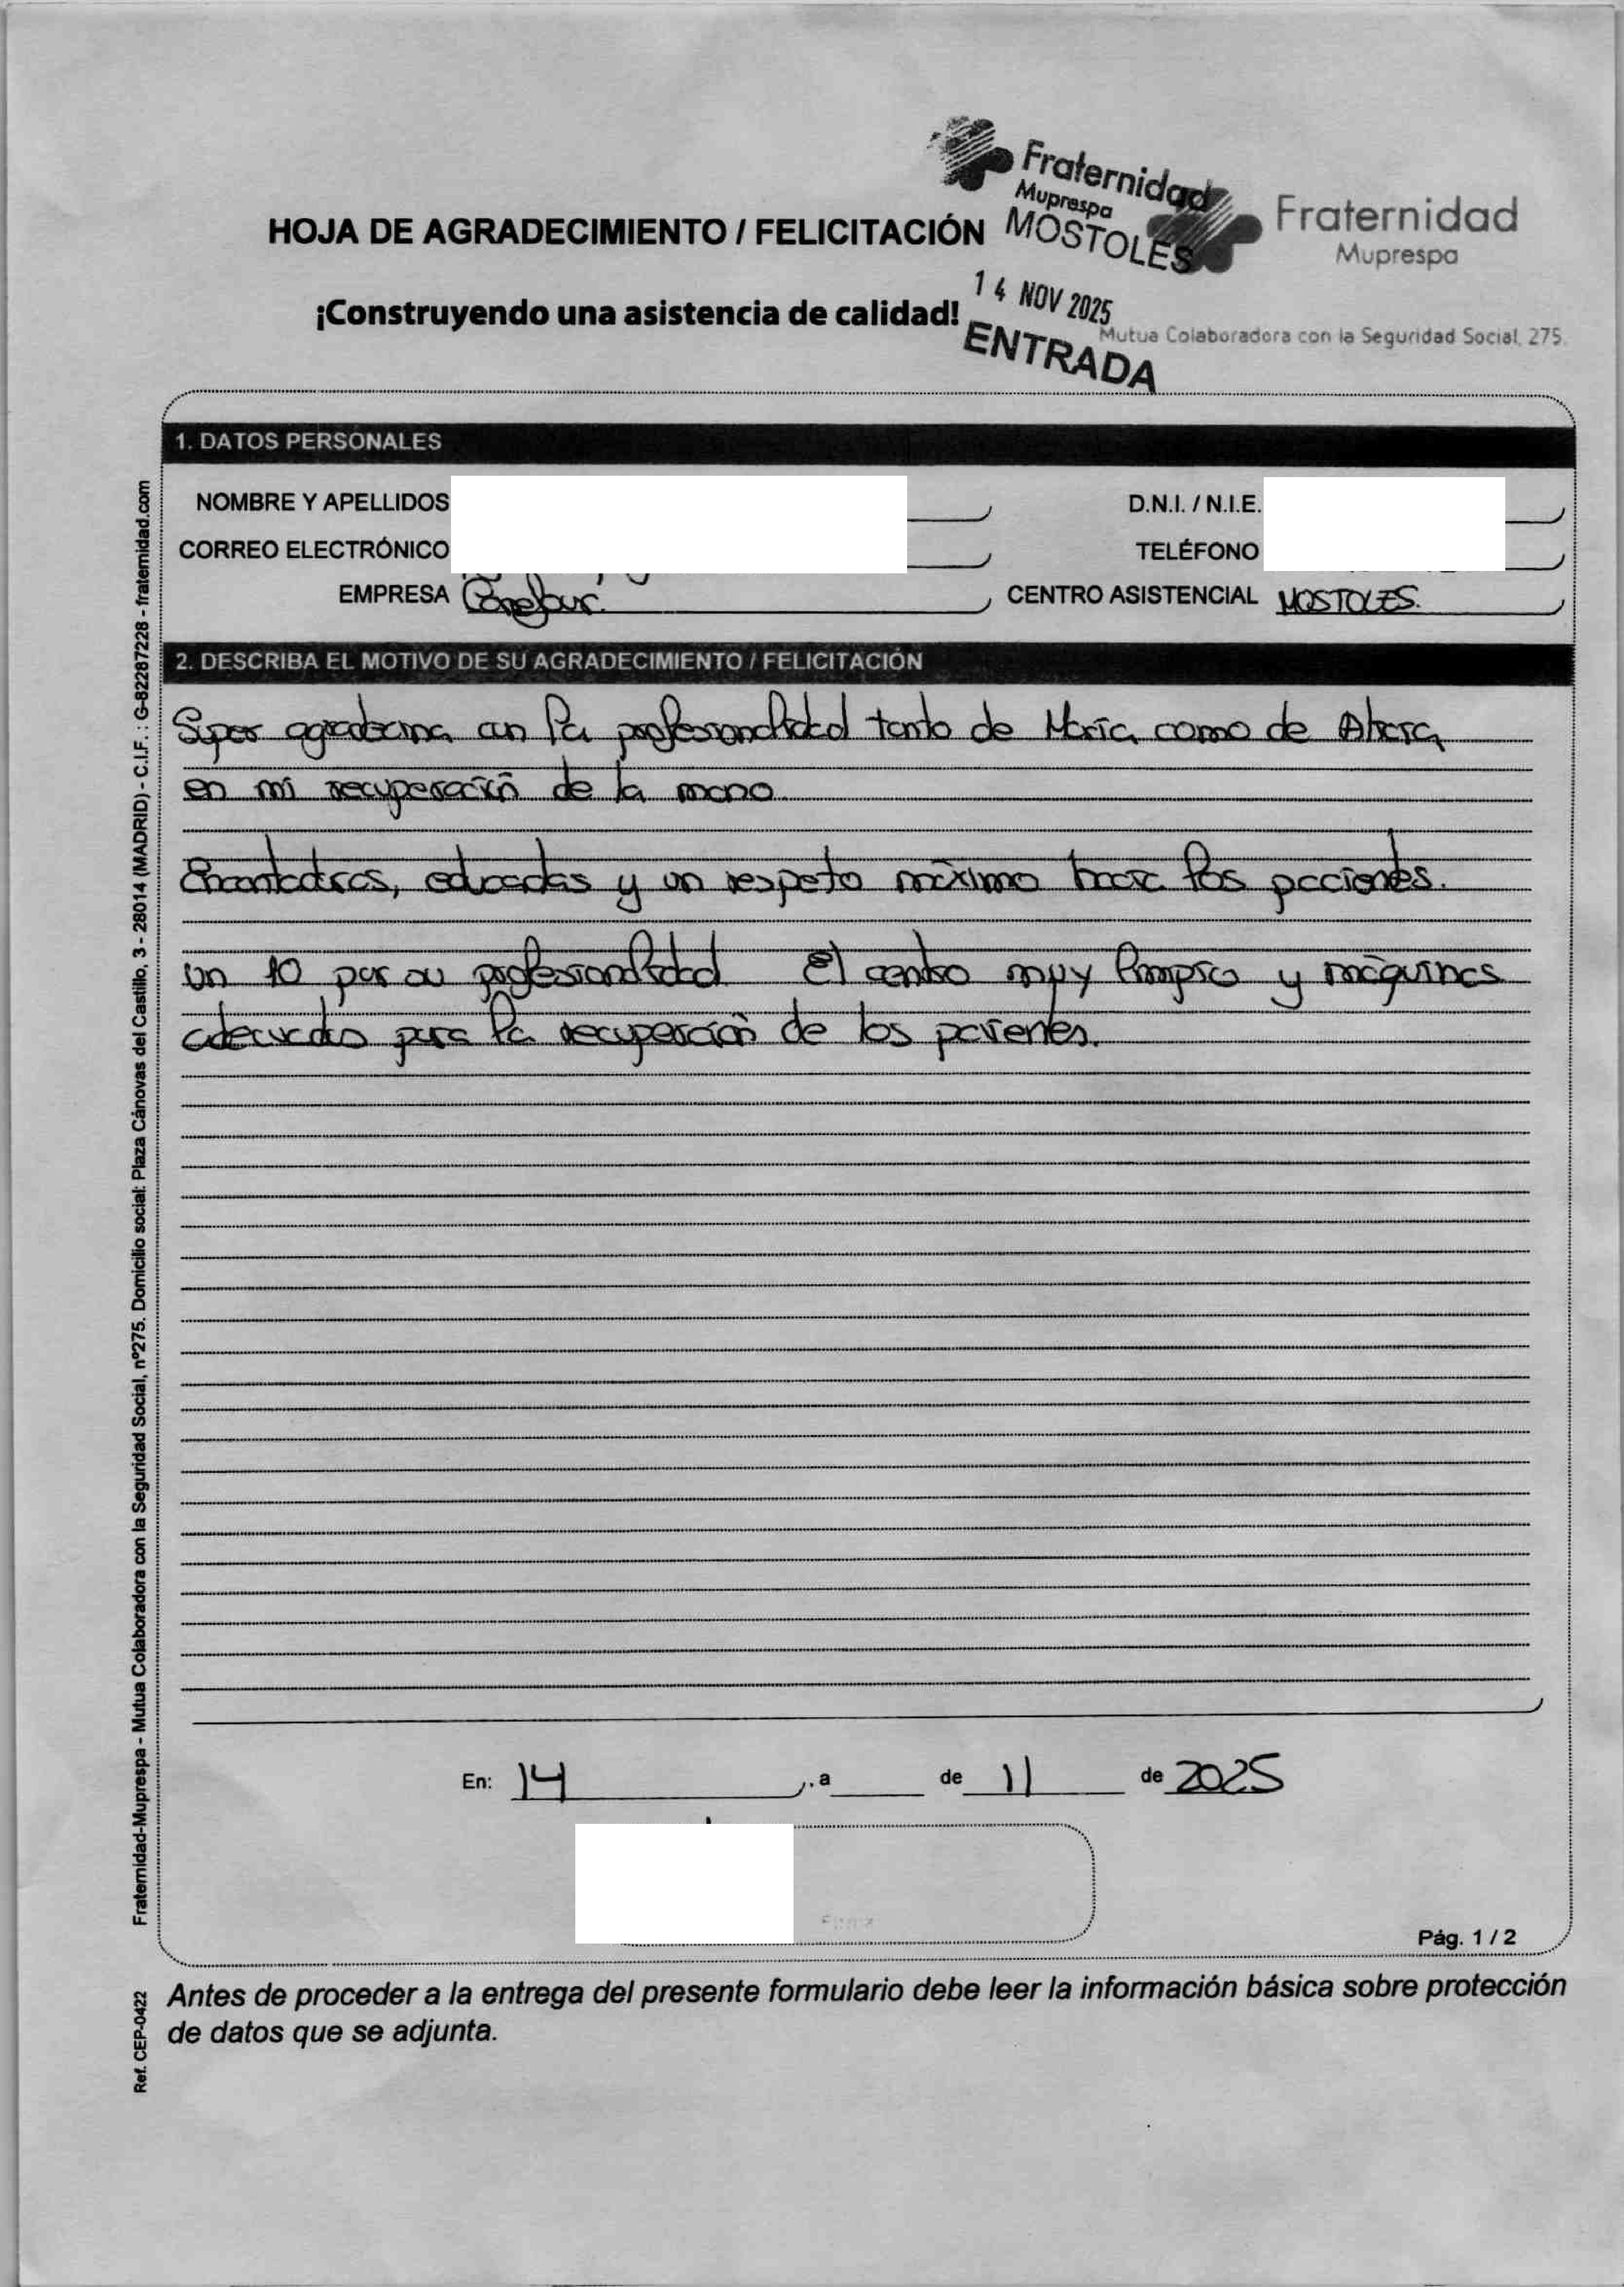 Fraternidad
Muprespa
MOSTOLES
14 NOV 2025
ENTRADA
HOJA DE AGRADECIMIENTO / FELICITACIÓN
¡Construyendo una asistencia de calidad!
Fraternidad
Muprespa
Mutua Colaboradora con la Seguridad Social, 275.
1. DATOS PERSONALES
NOMBRE Y APELLIDOS D.N.I. / N.I.E.
CORREO ELECTRÓNICO TELÉFONO
EMPRESA CENTRO ASISTENCIAL MOSTOLES.
2. DESCRIBA EL MOTIVO DE SU AGRADECIMIENTO / FELICITACIÓN
Super con la profesionalidad tanto de María como de
en mi recuperación de la mano.
Encantadoras, educadas y un respeto máximo hacia los pacientes.
un 10 por su profesionalidad. El centro muy limpio y máquinas
adecuadas para la recuperación de los pacientes.
En: 14 , a de 11 de 2025
Firma
Pág. 1 / 2
Antes de proceder a la entrega del presente formulario debe leer la información básica sobre protección
de datos que se adjunta.
Fraternidad-Muprespa - Mutua Colaboradora con la Seguridad Social, nº275. Domicilio social: Plaza Cánovas del Castillo, 3 - 28014 (MADRID) - C.I.F. : G-82287228 - fraternidad.com
Ref. CEP-0422